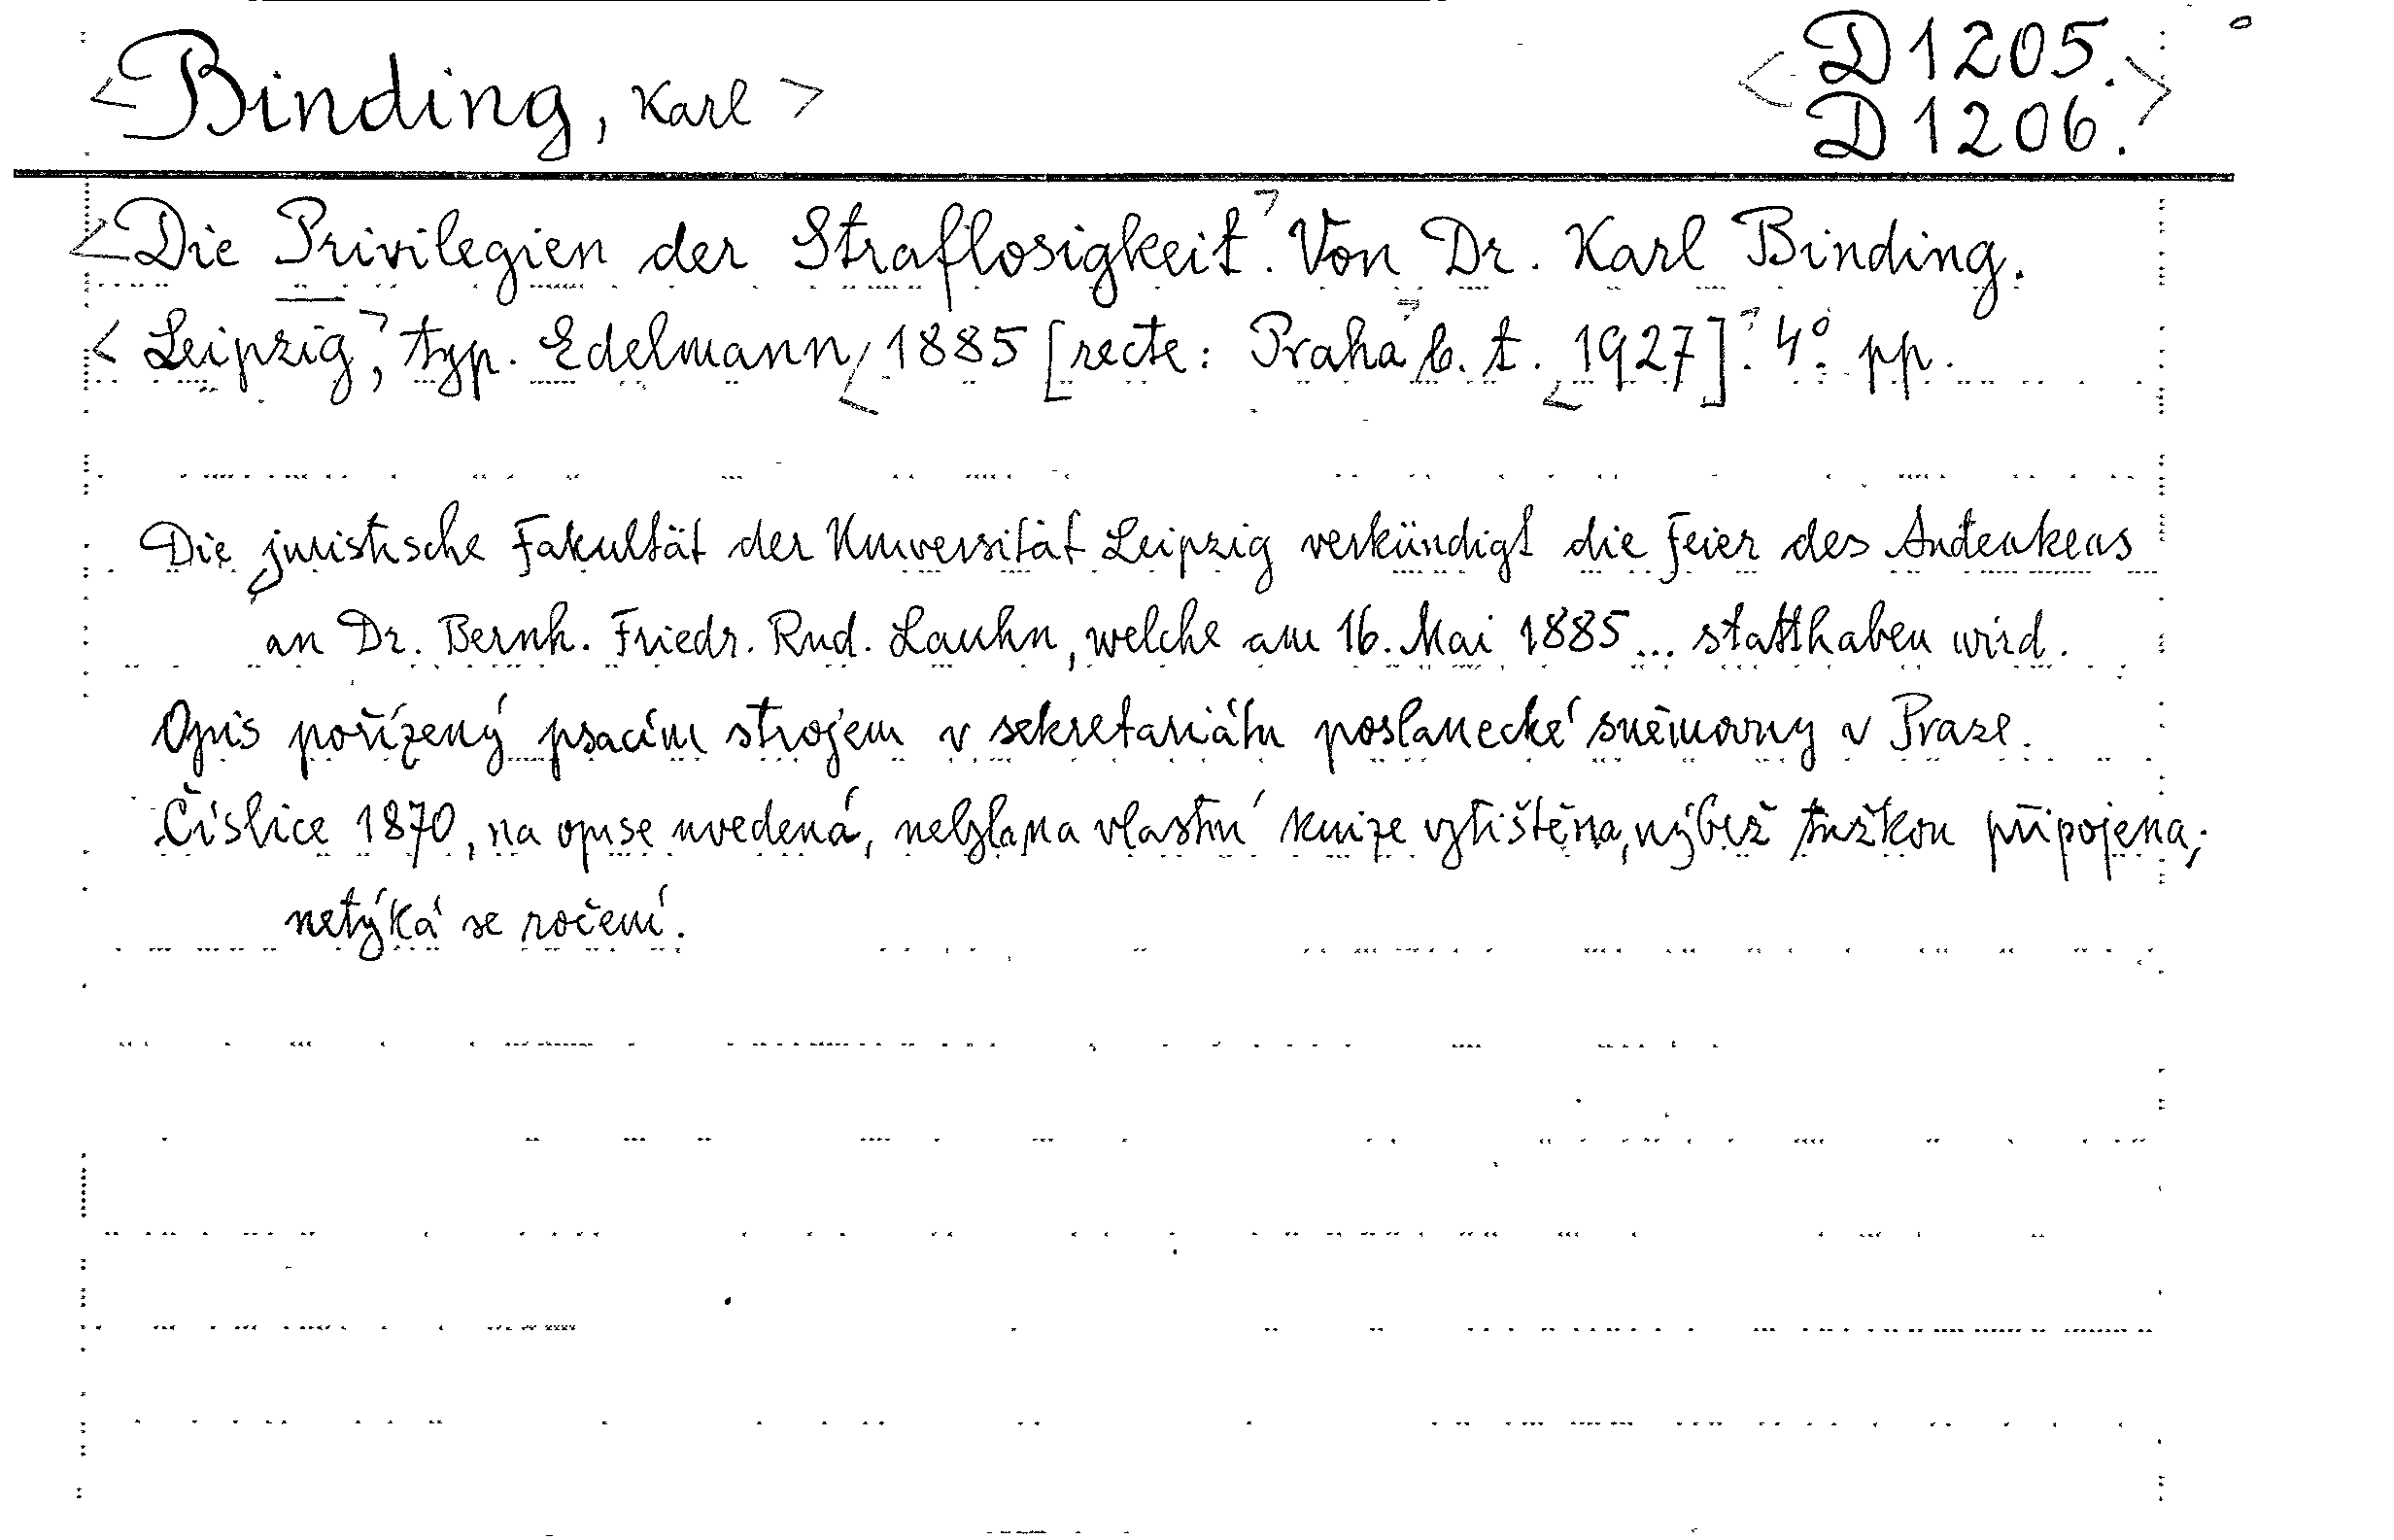 <Binding, Karl>
<D 1205.>
D 1206.
<Die Privilegien der Straflosigkeit>. Von Dr. Karl Binding.
<Leipzig>, typ. Edelmann, <1885 [recte: Praha> b. t. <1927]>. 4°. pp.
Die juristische Fakultät der Universität Leipzig verkündigt die Feier des Andenkens
an Dr. Bernh. Friedr. Rud. Lauhn, welche am 16. Mai 1885 ... statthaben wird.
Opis pořízený psacím strojem v sekretariátu poslanecké sněmovny v Praze.
Číslice 1870, na opise uvedená, nebyla na vlastní knize vytištěna, nýbrž tužkou připojena;
netýká se ročení.